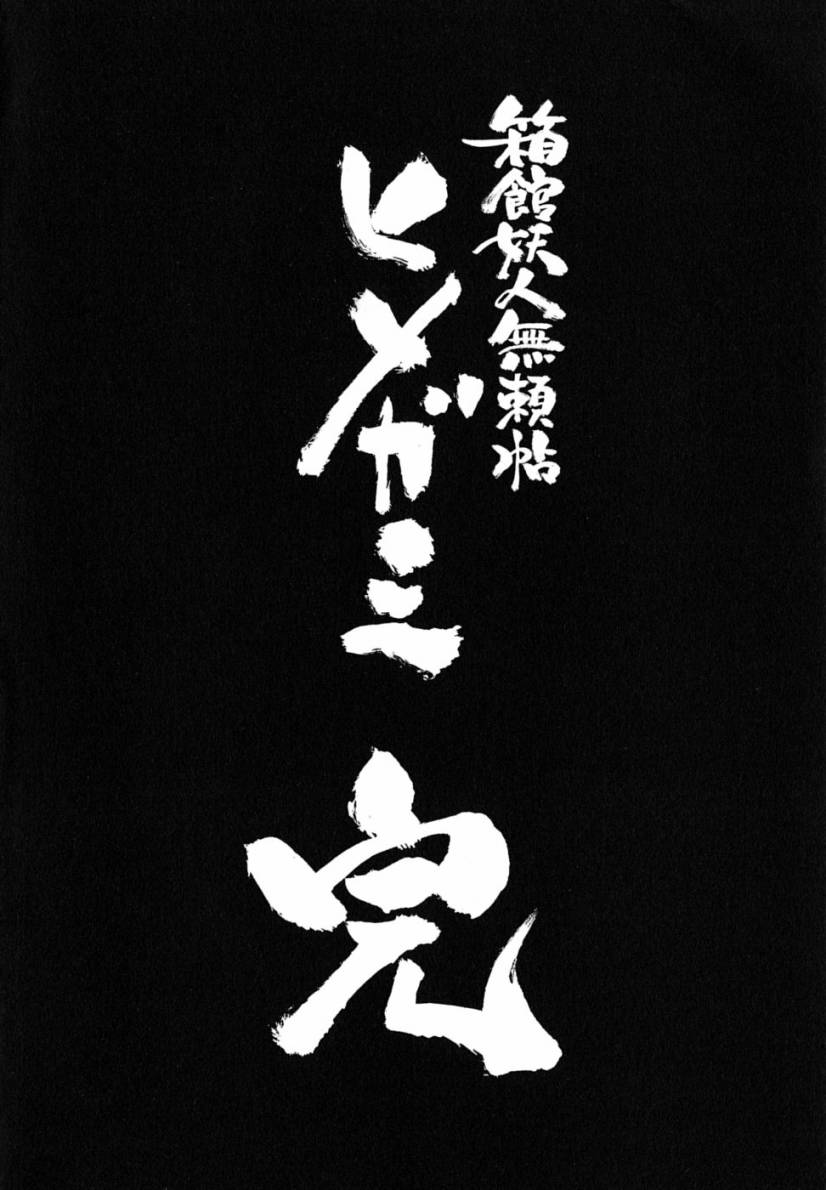 箱館妖人無頼帖
ヒメガミ 完